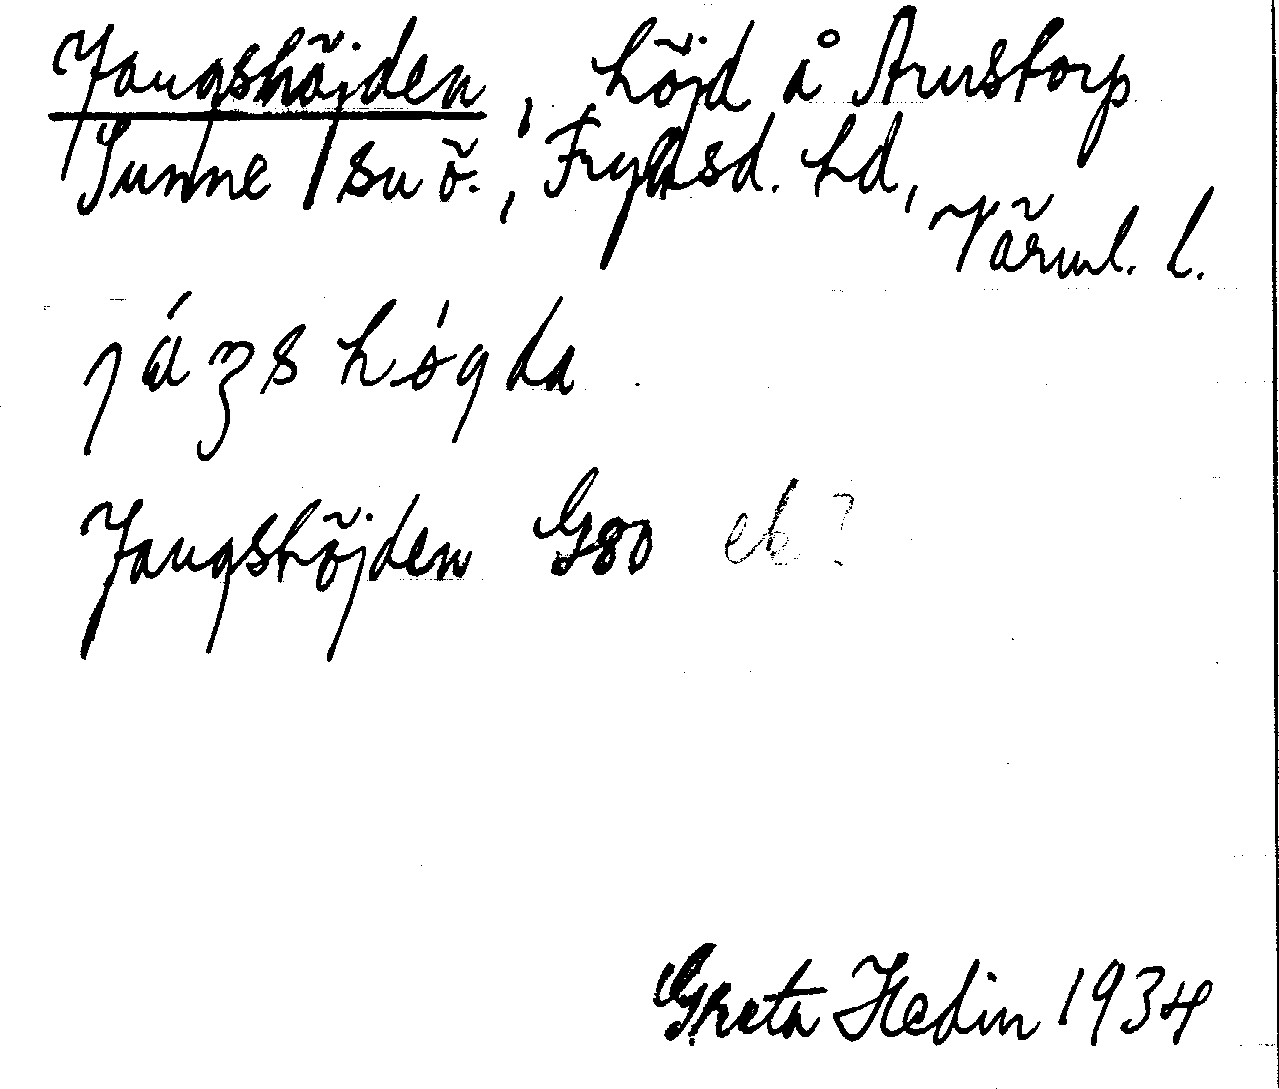 Jangshöjden, höjd å Arnstorp
Sunne sn ö., Fryksd. hd,
Värml. l.
jáŋshǿgda
Jangshöjden G80 ek?
Greta Hedin 1934